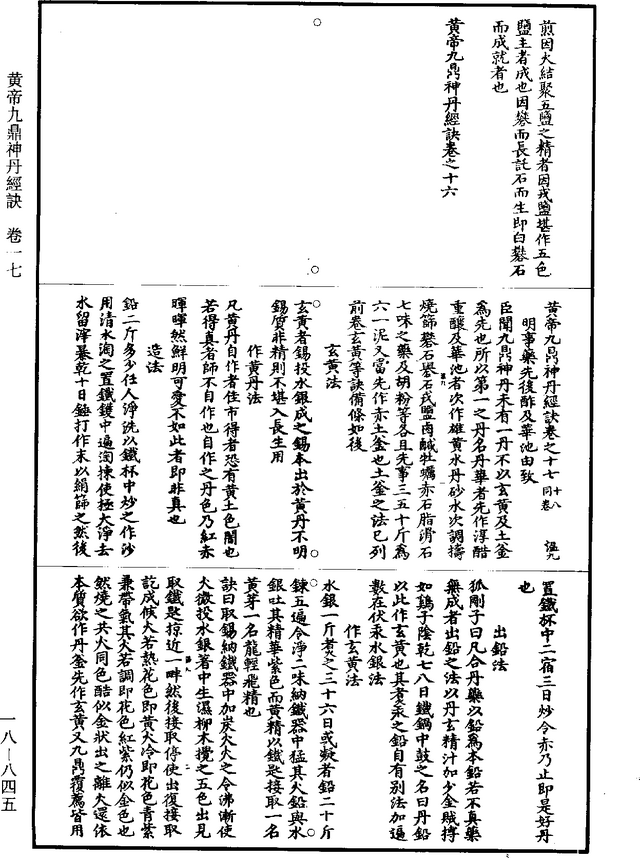 黄帝九鼎神丹經訣 卷一七
煎因大結聚五鹽之精者因戎鹽堪作五色
鹽主者成也因礬而長託石而生即白礬石
而成就者也
黄帝九鼎神丹經訣卷之十六
黄帝九鼎神丹經訣卷之十七 十八同卷 温九
明事藥先後酢及華池由致
臣聞九鼎神丹未有一丹不以玄黄及土釜
爲先也所以第一之丹名丹華者先作淳醋
重釀及華池者次作雄黄水丹砂水次調擣
燒篩礬石礜石戎鹽鹵鹹牡蠣赤石脂滑石
七味之藥及胡粉等各且先事三五十斤爲
六一泥又當先作赤土釜也土釜之法已列
前卷玄黄等訣備條如後
玄黄法
玄黄者錫投水銀成之錫本出於黄丹不明
錫質非精則不堪入長生用
作黄丹法
凡黄丹自作者佳市得者恐有黄土色闇也
若得真者師不自作也自作之丹色乃紅赤
暉暉然鮮明可愛不如此者即非真也
造法
鉛二斤多少任人淨洗以鐵杯中炒之作沙
用清水淘之置鐵鑊中遍淘揀使極大淨去
水留滓暴乾十日錘打作末以絹篩之然後
置鐵杯中二宿三日炒令赤乃止即是好丹
也
出鉛法
狐剛子曰凡合丹藥以鉛爲本鉛若不真藥
無成者出鉛之法以丹玄精汁加少金賊摶
如鷄子陰乾七八日鐵鍋中鼓之名曰丹鉛
以此作玄黄也其煮汞之鉛自有別法加遍
數在伏汞水銀法
作玄黄法
水銀一斤煮之三十六日或凝者鉛二十斤
鍊五遍令淨二味納鐵器中猛其火鉛與水
銀吐其精華紫色而黄精以鐵匙接取一名
黄芽一名龍輕飛精也
訣曰取錫納鐵器中加炭火火之令沸漸使
火微投水銀著中生濕柳木攪之五色出見
取鐵匙掠近一畔然後接取停使出復接取
訖成候火若熱花色即黄火冷即花色青紫
兼帶氣其火若調即花色紅紫仍似金色也
然燒之共火同色酷似金狀出之離火還依
本質欲作丹釜先作玄黄又九鼎覆薦皆用
一八—八四五